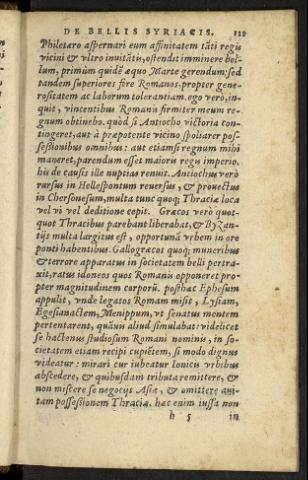 DE BELLIS SYRIACIS. 121
Philetæro aspernari eum affinitatem tãti regis
vicini & vltro inuitãtis, ostendit imminere bel-
lum, primùm quidẽ æquo Marte gerendum; sed
tandem superiores fore Romanos, propter gene-
rositatem ac laborum tolerantiam. ego verò, in-
quit, vincentibus Romanis firmiter meum re-
gnum obtinebo. quòd si Antiocho victoria con-
tingeret, aut à præpotente vicino spoliarer pos-
sessionibus omnibus: aut etiamsi regnum mihi
maneret, parendum esset maioris regis imperio.
his de causis ille nuptias renuit. Antiochus verò
rursus in Hellespontum reuersus, & prouectus
in Chersonesum, multa tunc quoq; Thraciæ loca
vel vi vel deditione cepit. Græcos verò quot-
quot Thracibus parebant liberabat, & Byzan-
tijs multa largitus est, opportunã vrbem in ore
ponti habentibus. Gallogræcos quoq; muneribus
& terrore apparatus in societatem belli pertra-
xit, ratus idoneos quos Romanis opponeret pro-
pter magnitudinem corporũ. posthac Ephesum
appulit, vnde legatos Romam misit, Lysiam,
Egesianactem, Menippum, vt senatus mentem
pertentarent, quãuis aliud simulabat: videlicet
se hactenus studiosum Romani nominis, in so-
cietatem etiam recipi cupiẽtem, si modo dignus
videatur: mirari cur iubeatur Ionicis vrbibus
abscedere, & quibusdam tributa remittere, &
non miscere se negocijs Asiæ, & omittere aui-
tam possessionem Thraciæ. hæc enim iussa non
h 5 in